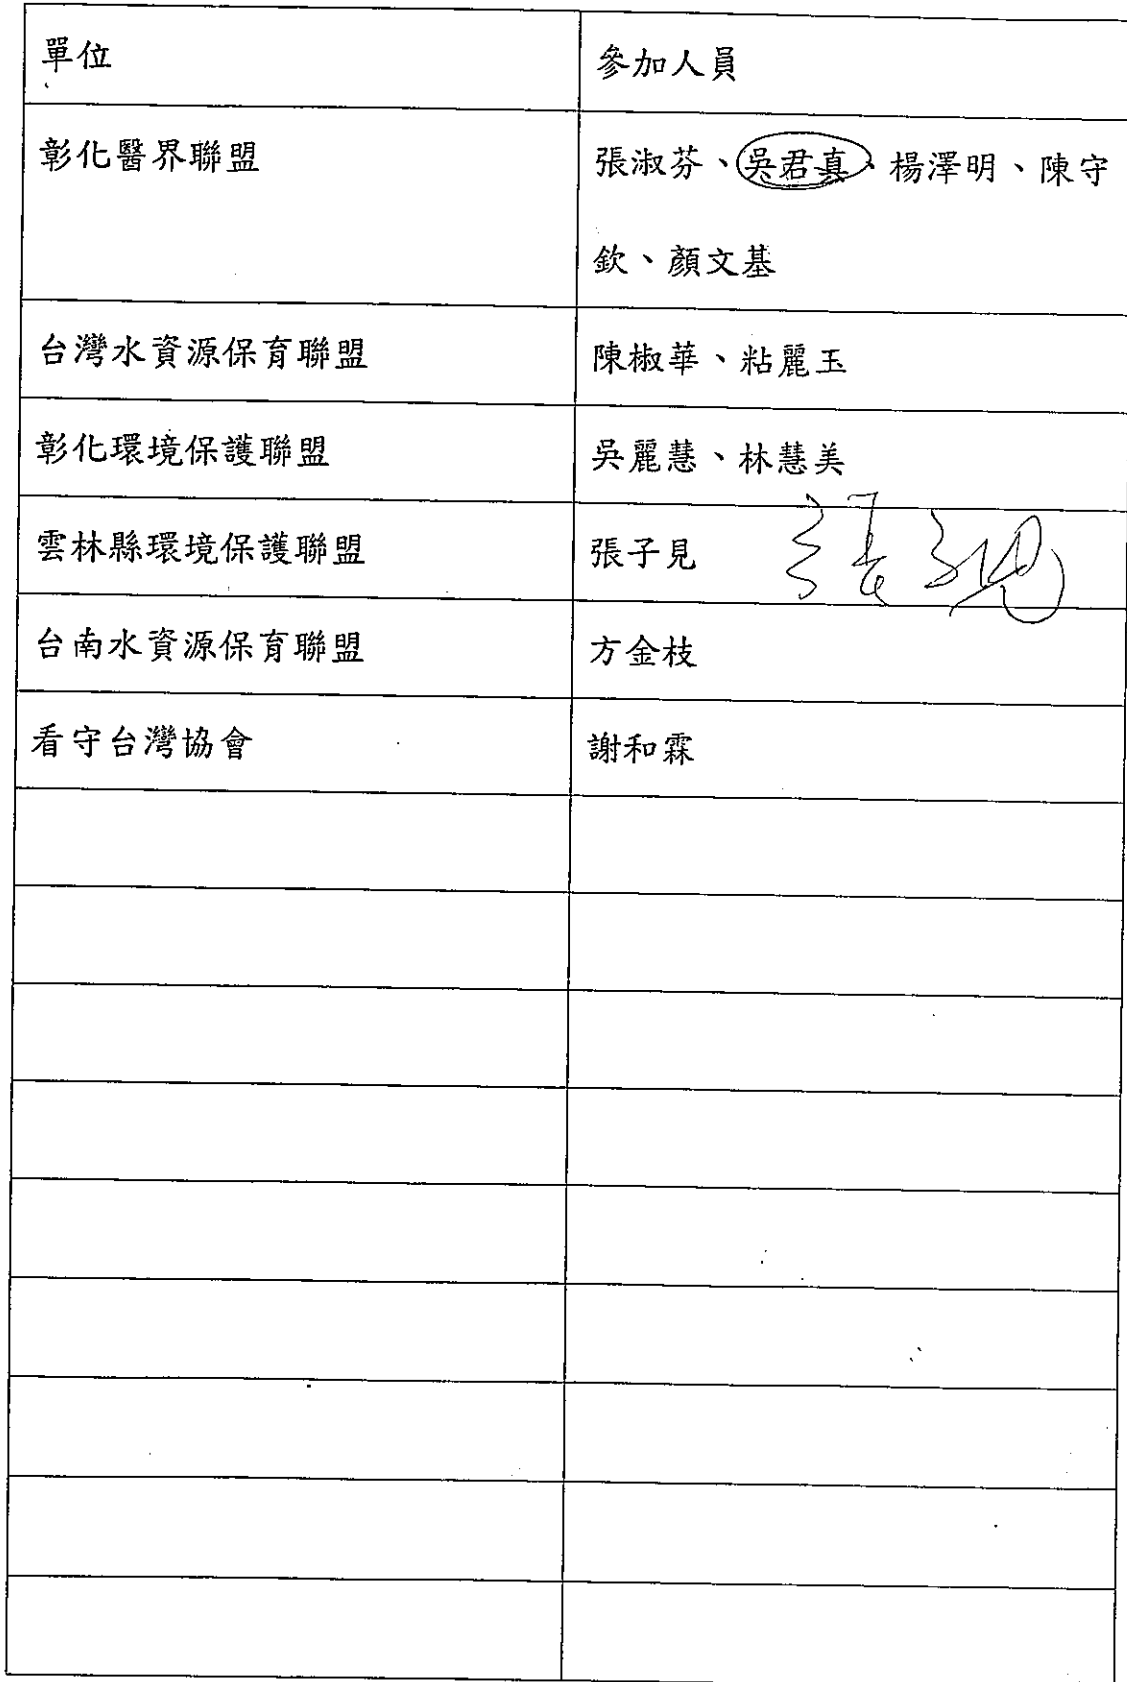 單位
參加人員
彰化醫界聯盟
張淑芬、吳君真、楊澤明、陳守
欽、顏文基
台灣水資源保育聯盟
陳椒華、粘麗玉
彰化環境保護聯盟
吳麗慧、林慧美
雲林縣環境保護聯盟
張子見
張子見
台南水資源保育聯盟
方金枝
看守台灣協會
謝和霖